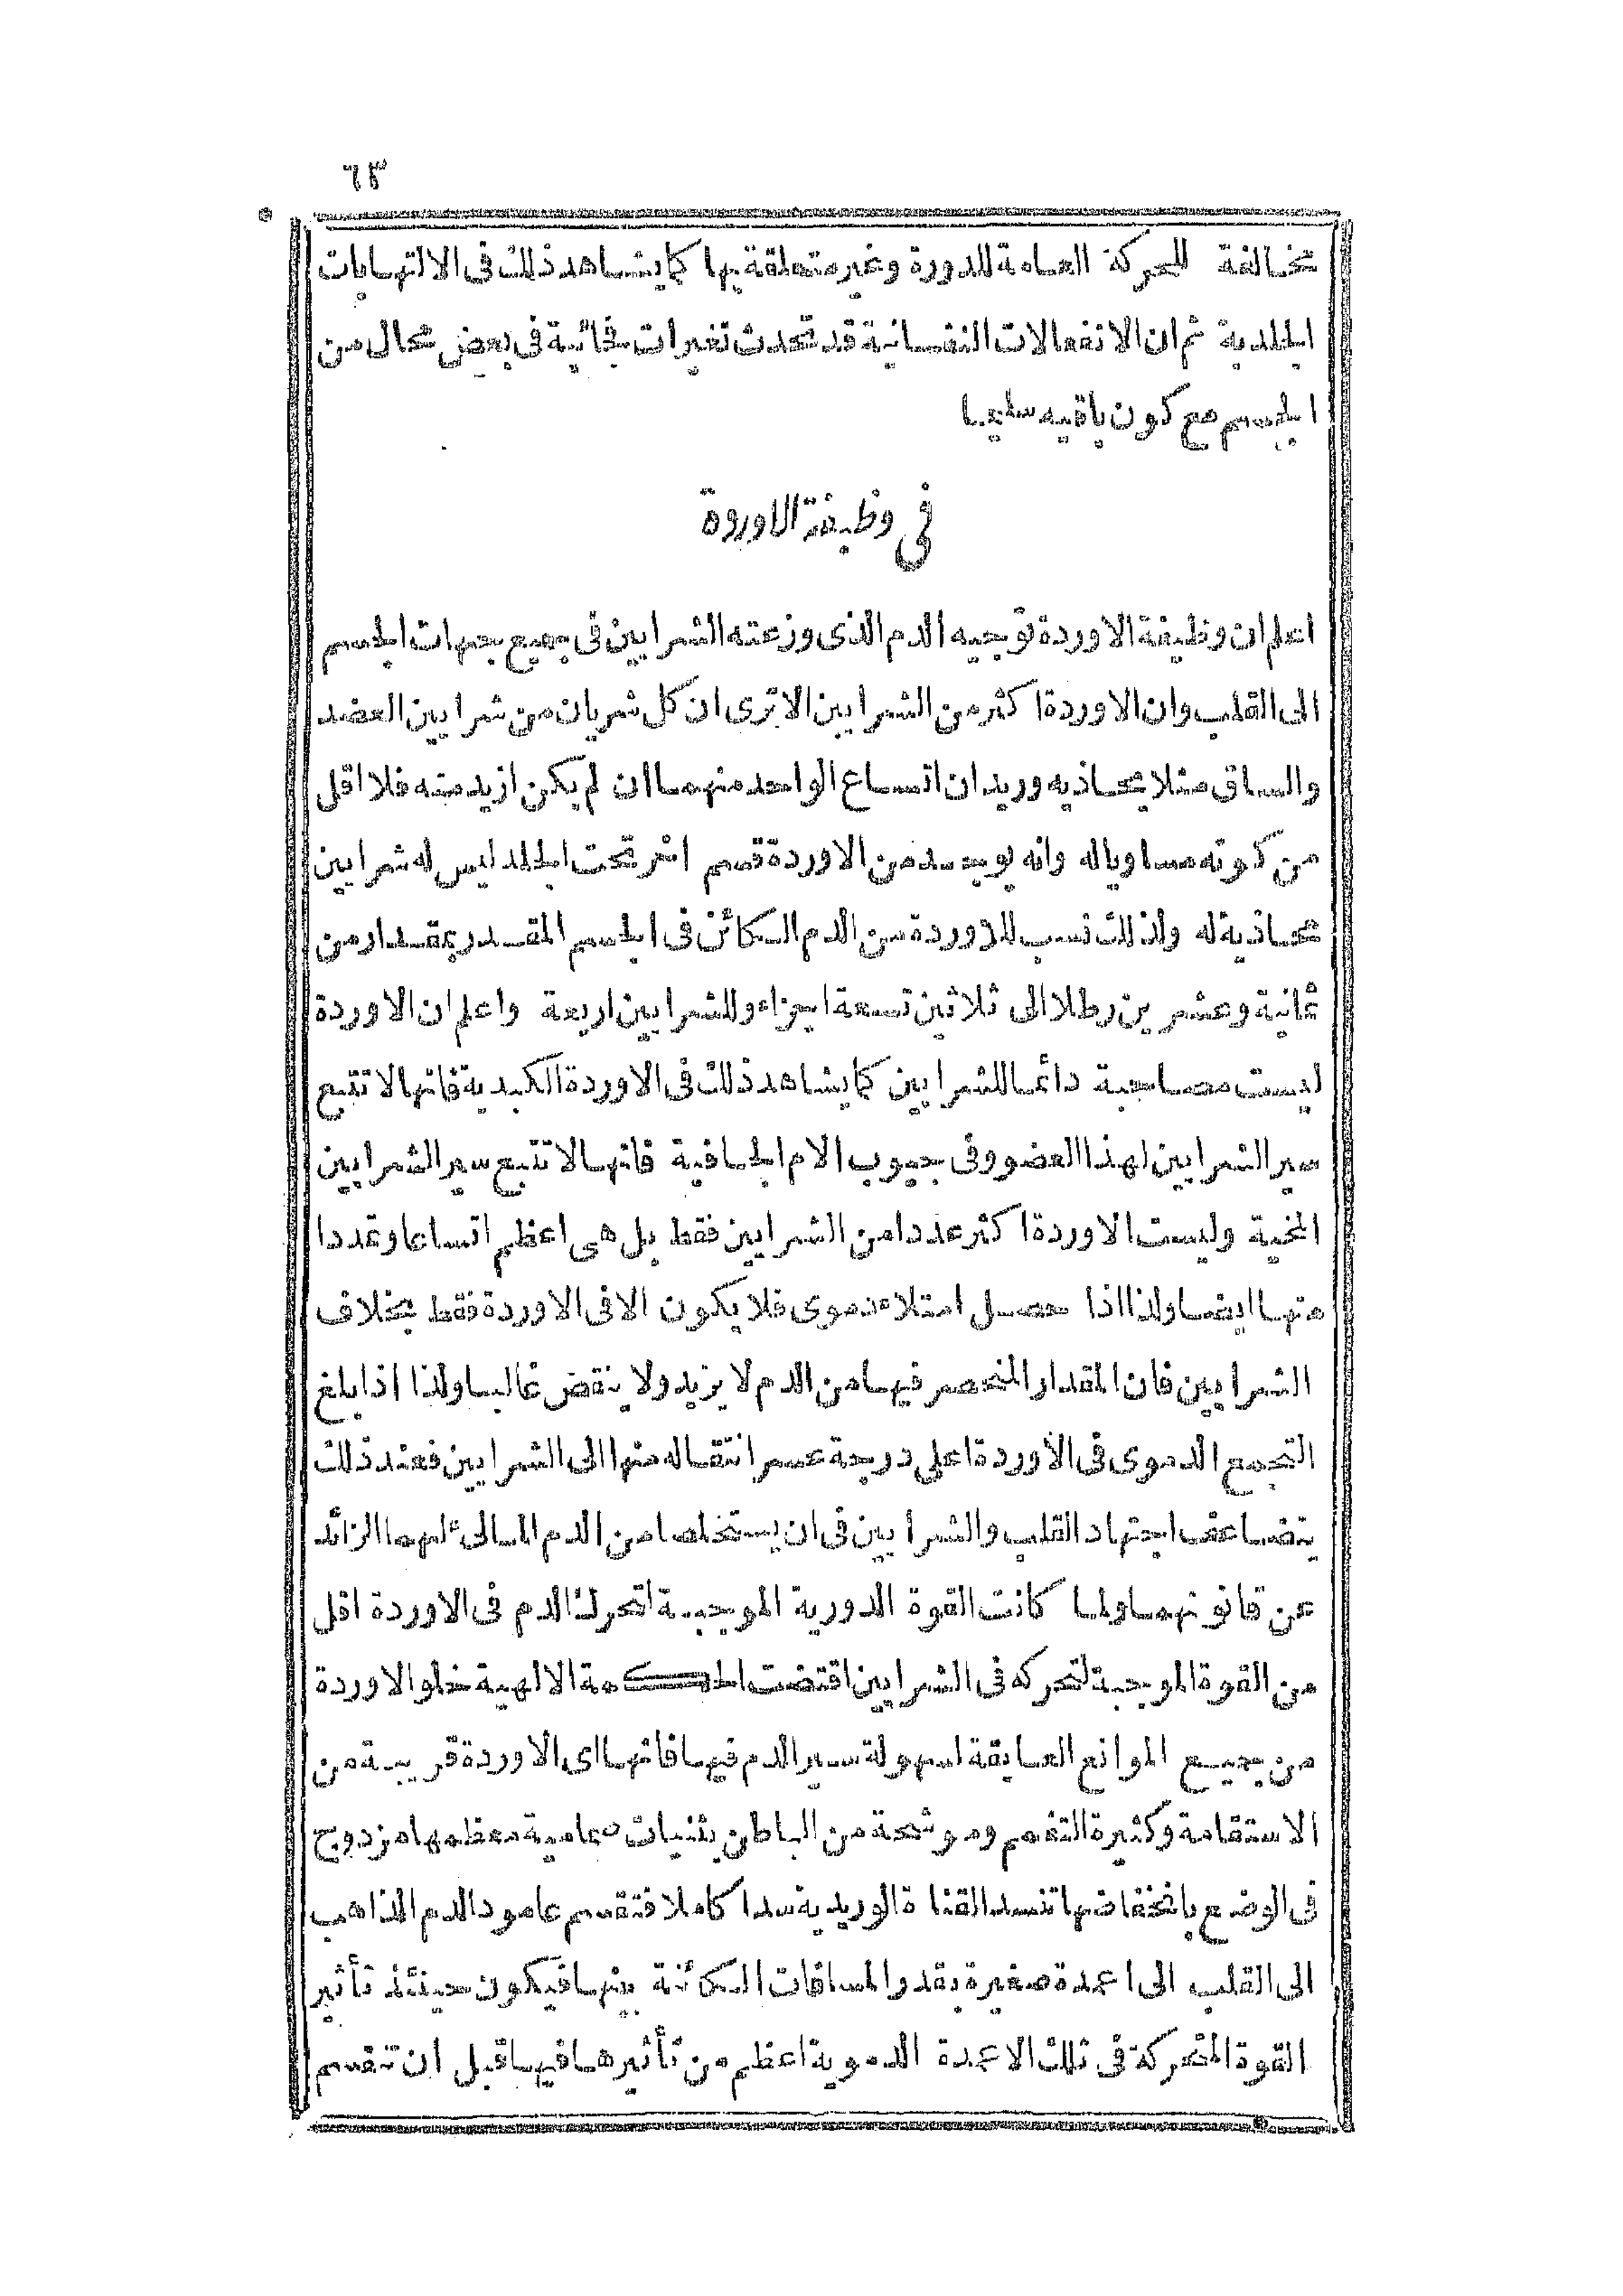 ٦٣
مخالفة للحركة العامة للدورة وغير متعلقة بها كما يشاهد ذلك فى الالتهابات
الجلدية ثم ان الانفعالات النفسانية قد تحدث تغيرات فجائية فى بعض محال من
الجسم مع كون باقيه سليما
فى وظيفة الاوردة
اعلم ان وظيفة الاوردة توجيه الدم الذى وزعته الشرايين فى جميع جهات الجسم
الى القلب وان الاوردة اكثر من الشرايين الا ترى ان كل شريان من شرايين العضد
والساق مثلا يحاذيه وريدان اتساع الواحد منهما ان لم يكن ازيد منه فلا اقل
من كونه مساويا له وانه يوجد من الاوردة قسم اخر تحت الجلد ليس له شرايين
محاذية له ولذلك نسب للاوردة من الدم الكائن فى الجسم المقدر بمقدار من
ثمانية وعشرين رطلا الى ثلاثين تسعة اجزاء وللشرايين اربعة واعلم ان الاوردة
ليست مصاحبة دائما للشرايين كما يشاهد ذلك فى الاوردة الكبدية فانها لا تتبع
سير الشرايين لهذا العضو وفى جيوب الام الجافية فانها لا تتبع سير الشرايين
المخية وليست الاوردة اكثر عددا من الشرايين فقط بل هى اعظم اتساعا وتمددا
منها ايضا ولذا اذا حصل امتلاء دموى فلا يكون الا فى الاوردة فقط بخلاف
الشرايين فان المقدار المنحصر فيها من الدم لا يزيد ولا ينقص غالبا ولذا اذا بلغ
التجمع الدموى فى الاوردة اعلى درجة عسر انتقاله منها الى الشرايين فعند ذلك
يتضاعف اجتهاد القلب والشرايين فى ان يستخلصا من الدم المالئ لهما الزائد
عن قانونهما ولما كانت القوة الدورية الموجبة لتحرك الدم فى الاوردة اقل
من القوة الموجبة لتحركه فى الشرايين اقتضت الحكمة الالهية خلو الاوردة
من جميع الموانع العايقة لسهولة سير الدم فيها فانها اى الاوردة قريبة من
الاستقامة وكثيرة التفمم وموشحة من الباطن بثنيات صمامية معظمها مزدوج
فى الوضع بانخفاضها تنسد القناة الوريدية سدا كاملا فتقسم عامود الدم الذاهب
الى القلب الى اعمدة صغيرة بقدر المسافات الكائنة بينها فيكون حينئذ تأثير
القوة المتحركة فى تلك الاعمدة الدموية اعظم من تأثيرها فيها قبل ان تقسم